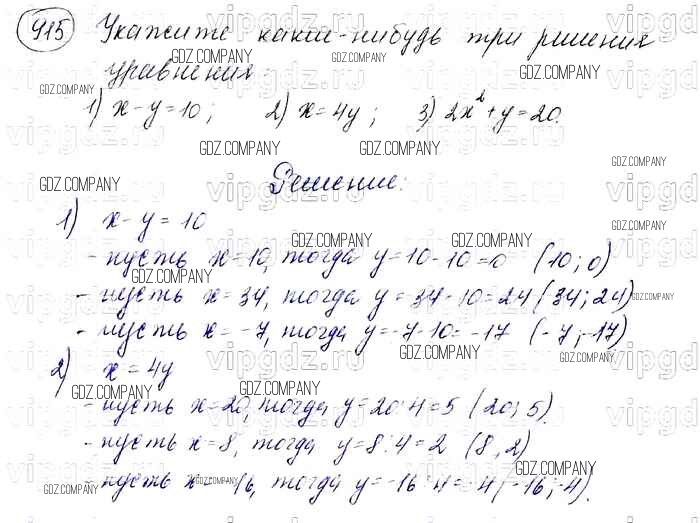 915 Укажите какие-нибудь три решения
уравнения:
1) x - y = 10; 2) x = 4y; 3) 2x² + y = 20.
Решение:
1) x - y = 10
- пусть x = 10, тогда y = 10 - 10 = 0 (10; 0)
- пусть x = 34, тогда y = 34 - 10 = 24 (34; 24)
- пусть x = -7, тогда y = -7 - 10 = -17 (-7; -17)
2) x = 4y
- пусть x = 20, тогда y = 20 : 4 = 5 (20; 5).
- пусть x = 8, тогда y = 8 : 4 = 2 (8, 2)
- пусть x = -16, тогда y = -16 : 4 = -4 (-16; -4).
GDZ.COMPANY
vipgdz.ru